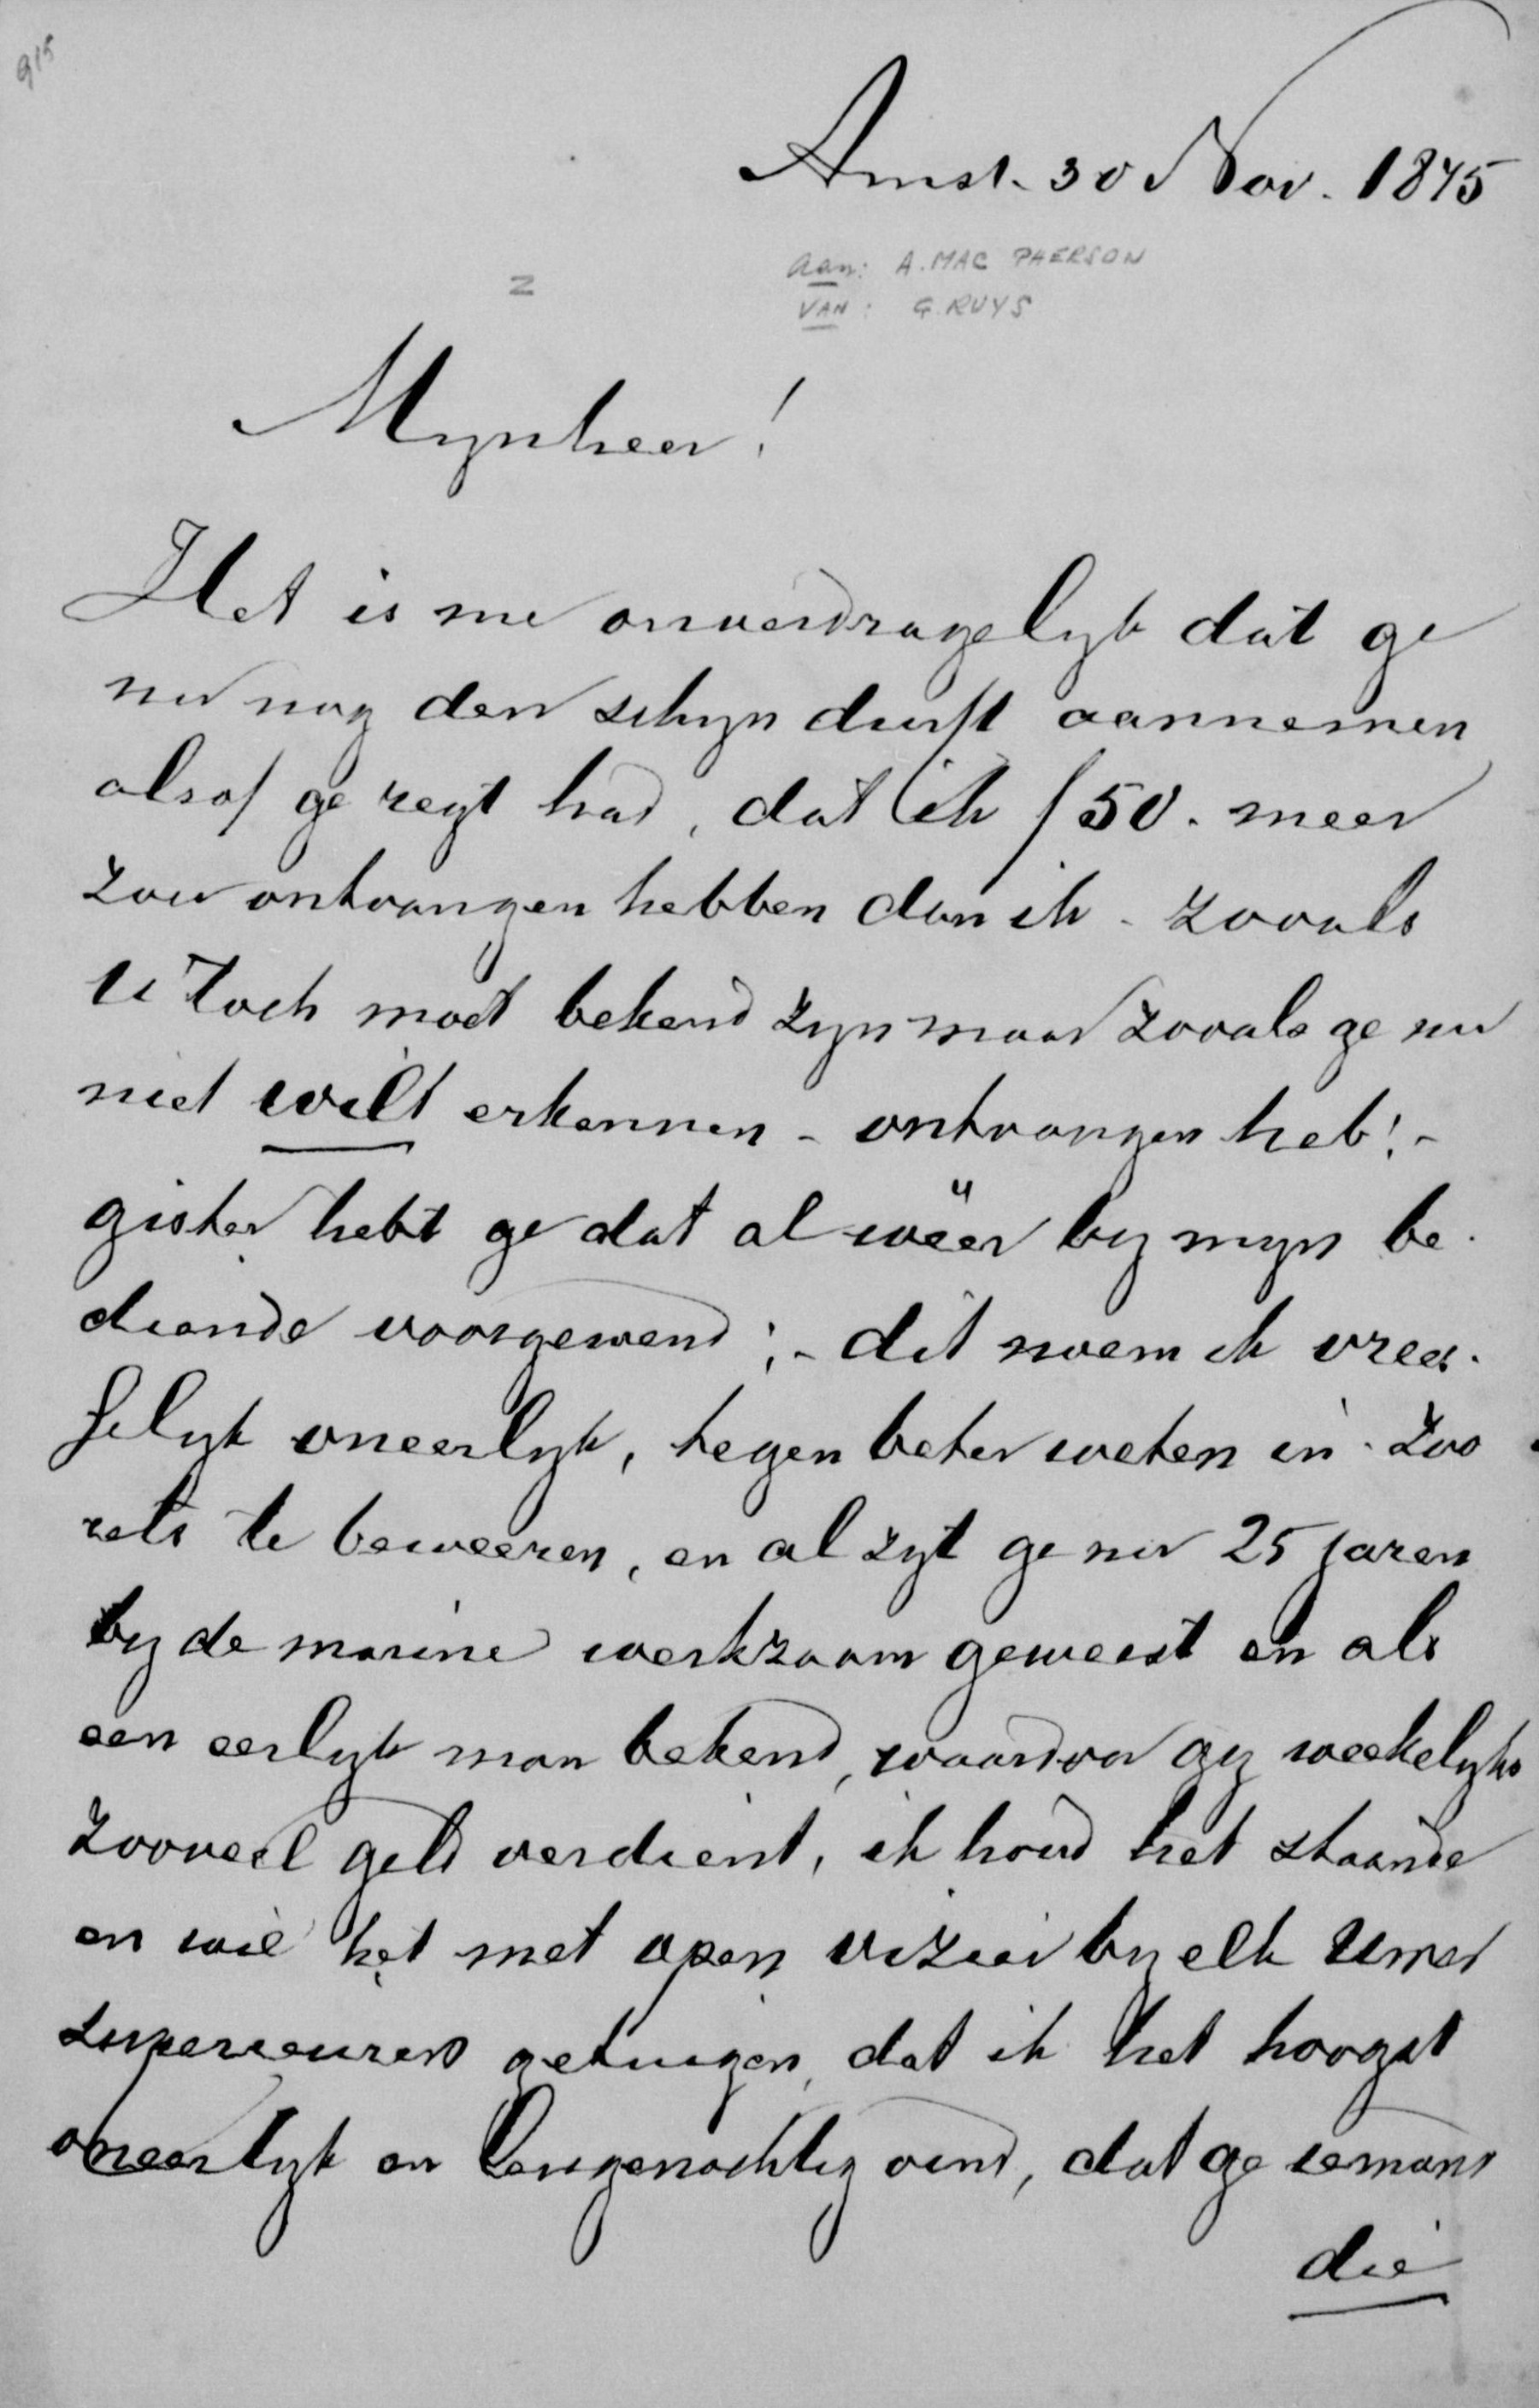 915
Amst. 30 Nov. 1875
aan: A. MAC PHERSON
Z
VAN: G. RUYS
Mynheer!
Het is me onverdragelyk dat ge
nu nog den schyn durft aannemen
alsof ge regt had, dat ik f 50. meer
zou ontvangen hebben dan ik - zooals
U toch moet bekend zyn maar zooals ge nu
niet wilt erkennen - ontvangen heb! -
gister hebt ge dat al weer by myn be-
diende voorgewend; - dit noem ik vrees-
selyk oneerlyk, tegen beter weten in zoo
iets te beweeren, en al zyt ge nu 25 jaren
by de marine werkzaam geweest en als
een eerlyk man bekend, waarvoor gy weekelyks
zooveel geld verdient, ik houd het staande
en wil het met open vizier by elk Uwer
superieuren getuigen, dat ik het hoogst
oneerlyk en leugenachtig vind, dat ge iemand
die